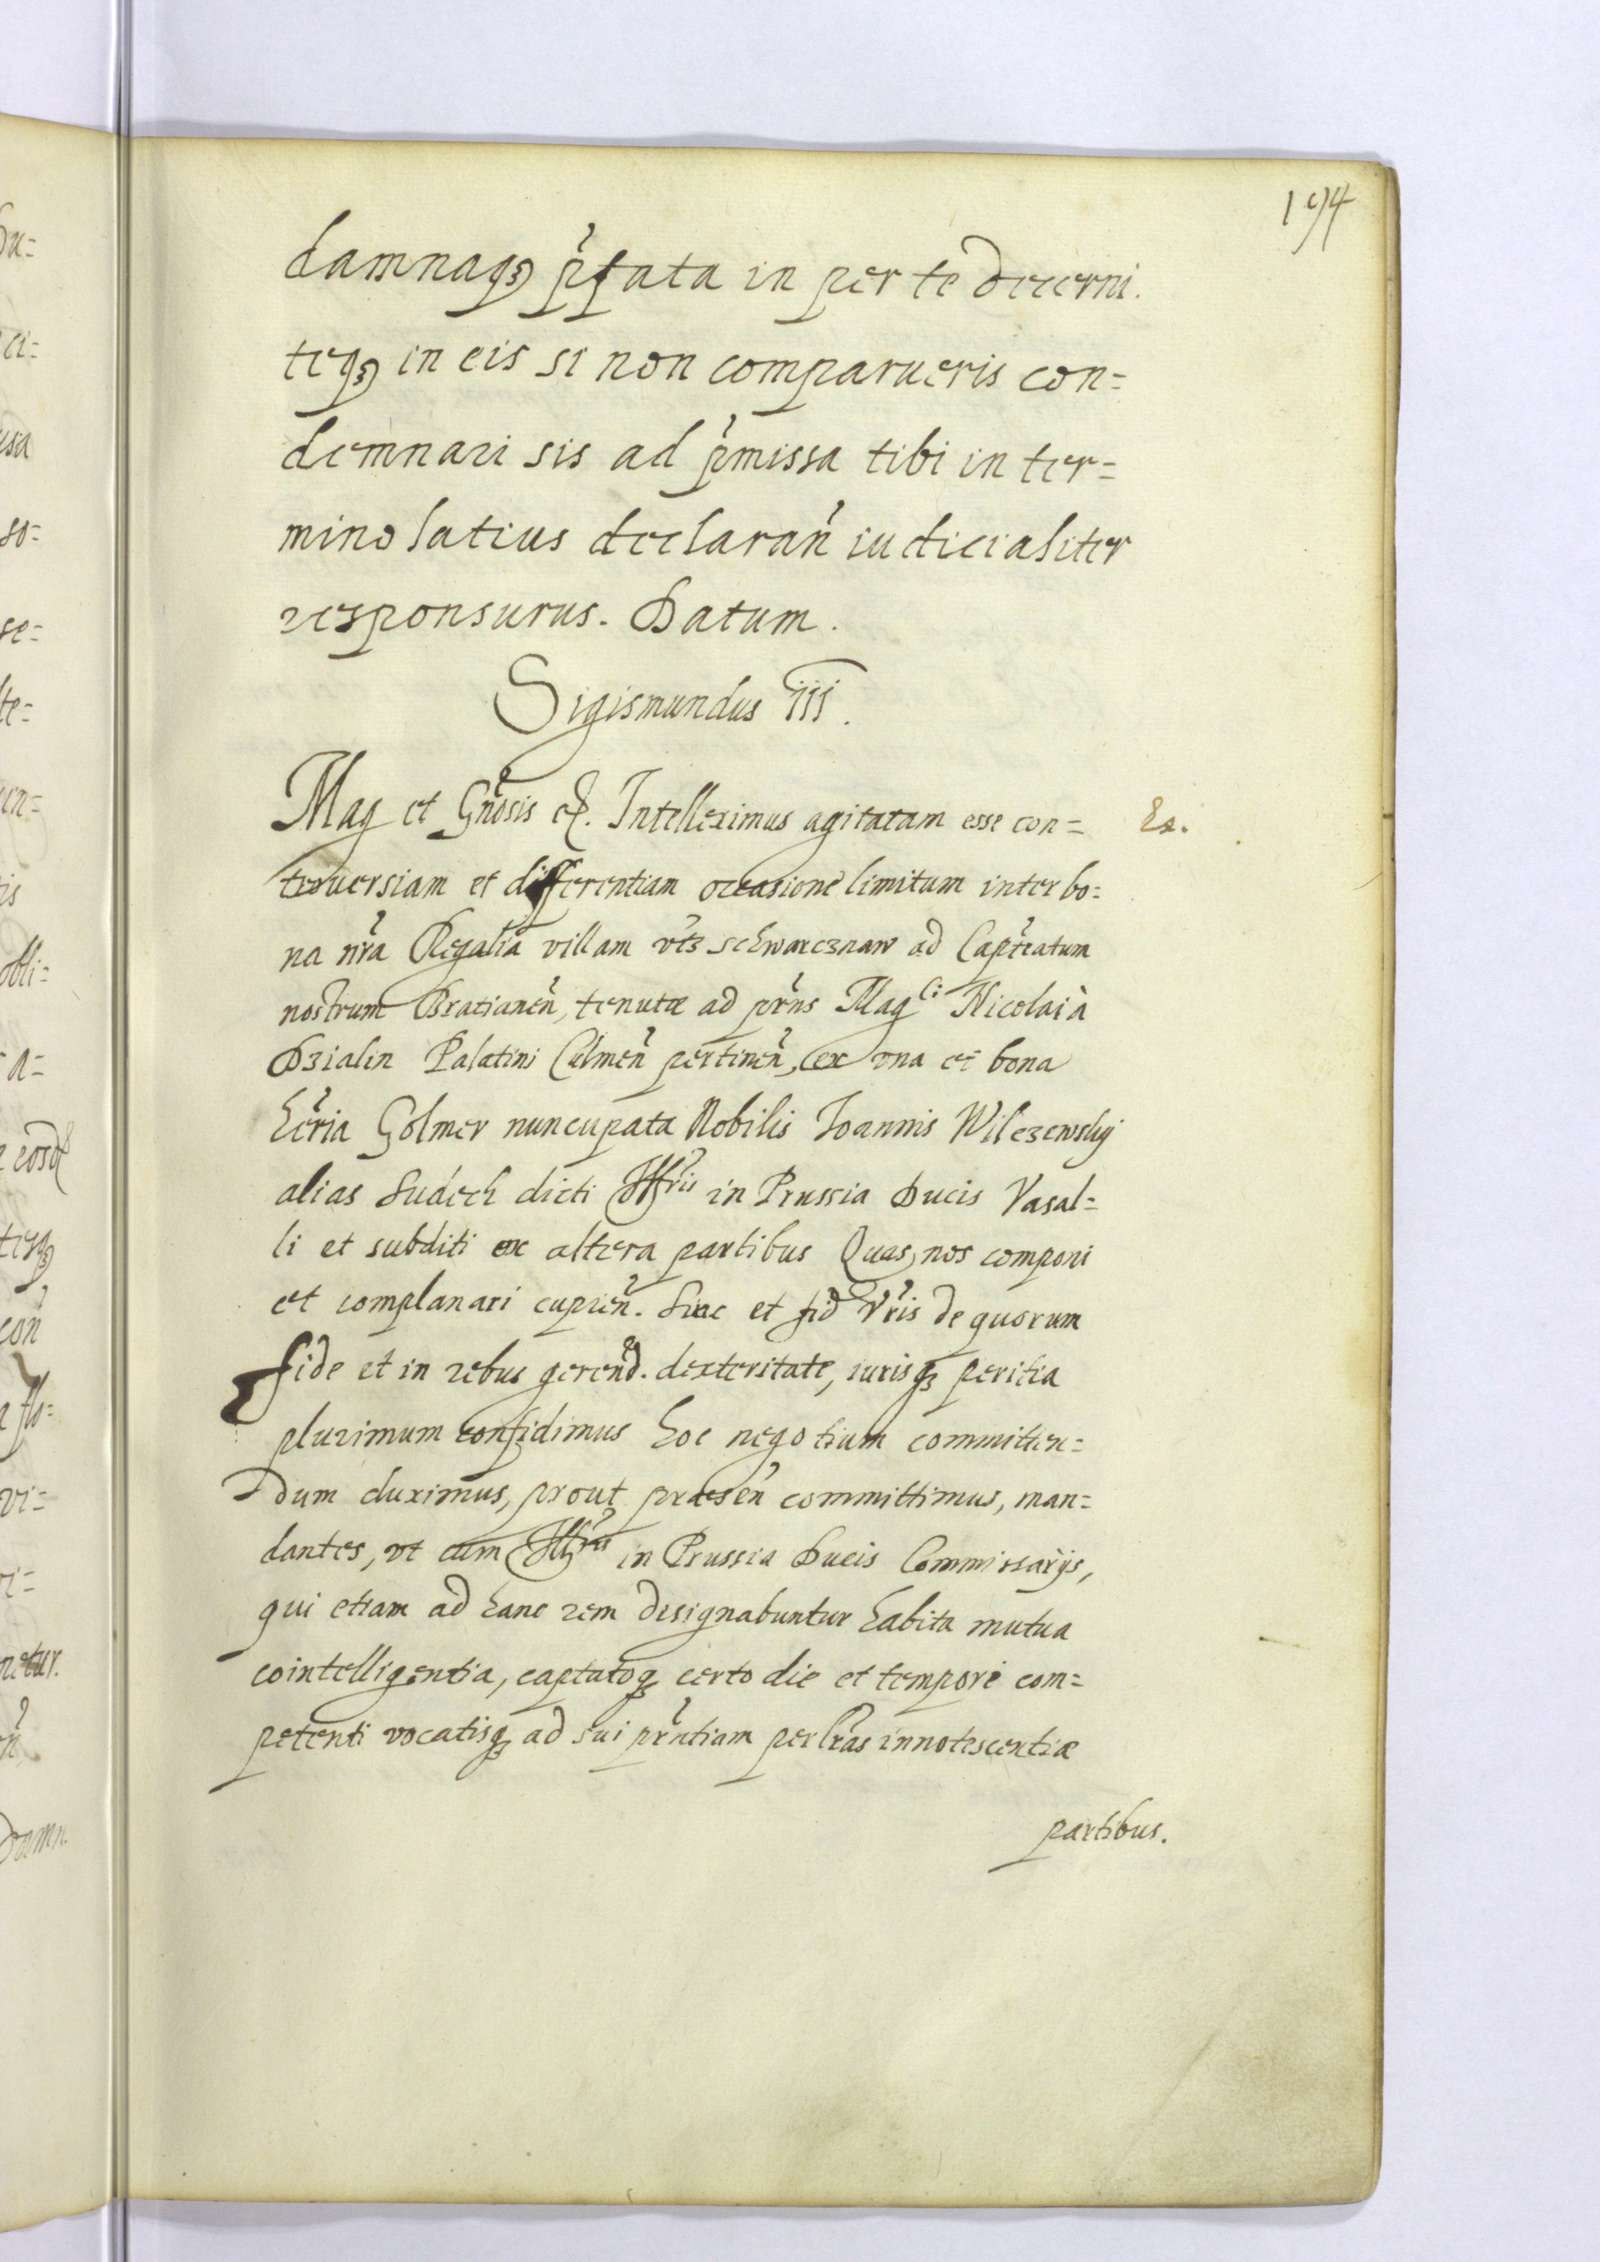 194
damnaqꝫ p̉fata in per te decerni.
teqꝫ in eis si non comparueris con=
demnari sis ad p̉missa tibi in ter=
mino latius declaran̉ iudicialiter
responsurus. Datum.
Sigismundus III.
Mag et Gn̉osis etc. Intelleximus agitatam esse con= Ex.
trouersiam et differentiam occasione limitum inter bo=
na nr̉a Regalia villam vtꝫ Schwarcznaw ad Cap̉teatum
nostrum Bratianen̉, tenutæ ad pr̉ns Mag^ci Nicolai à
Dzialin Palatini Culmen̉ pertinen̉, ex una et bona
her̉ia Golmer nuncupata Nobilis Ioannis Wilczewsky
alias Sudech dicti Ill^ris in Prussia Ducis Vasal=
li et subditi ex altera partibus Quas nos componi
et complanari cupien̉. Sinc et fid Vr̉is de quorum
fide et in rebus geren̉d. dexteritate, iurisqꝫ peritia
plurimum confidimus hoc negotium committen=
dum duximus, prout præsen̉ committimus, man=
dantes, vt cum Ill^ris in Prussia Ducis Commissarijs,
qui etiam ad hanc rem designabuntur habita mutua
cointelligentia, captatoqꝫ certo die et tempore com=
petenti vocatisqꝫ ad sui pr̉ntiam per lr̉as innotescentiæ
partibus.